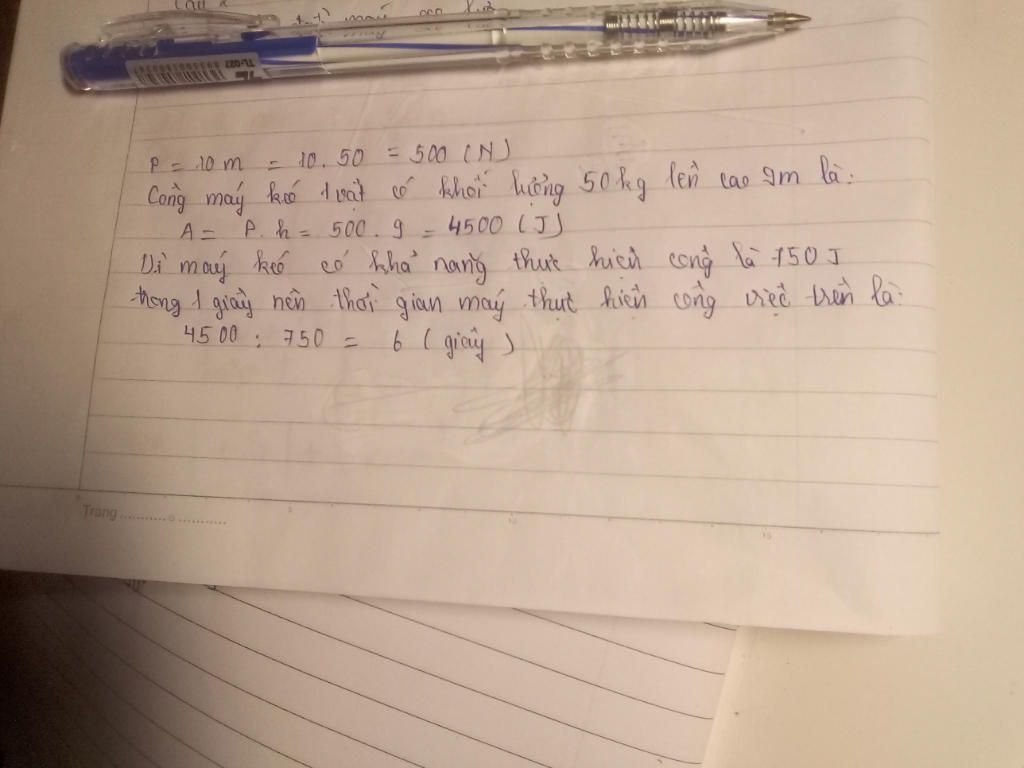 Câu 2
TL-027
P = 10 m = 10 . 50 = 500 (N)
Công máy kéo 1 vật có khối lượng 50 kg lên cao 9m là:
A = P. h = 500 . 9 = 4500 (J)
Vì máy kéo có khả năng thực hiện công là 750 J
trong 1 giây nên thời gian máy thực hiện công việc trên là:
4500 : 750 = 6 (giây)
Trang
5
10
15